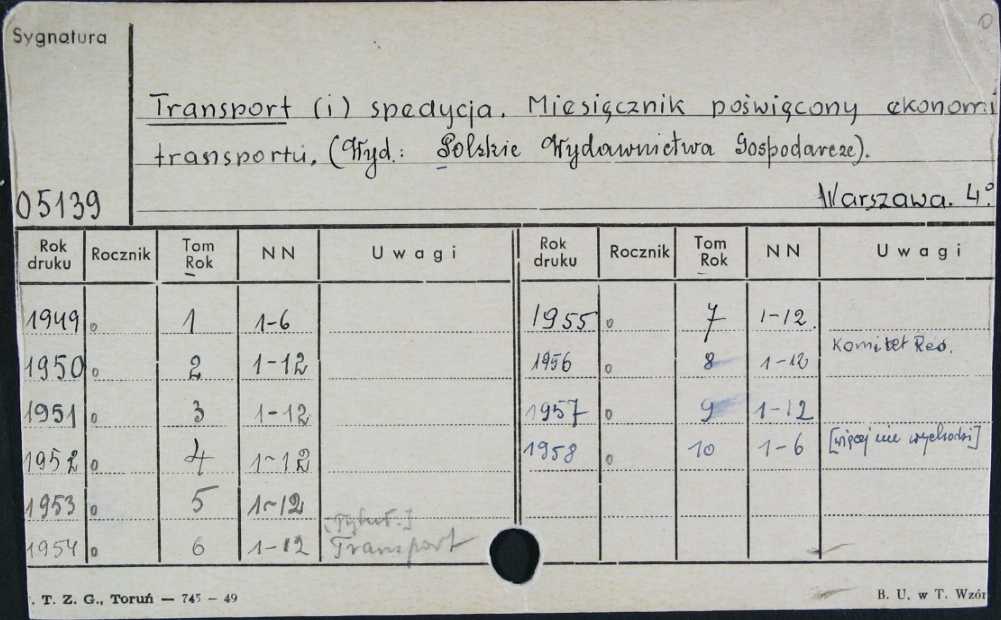 Sygnatura
Transport (i) spedycja. Miesięcznik poświęcony ekonomi
transportu. (Wyd.: Polskie Wydawnictwa Gospodarcze).
05139
Warszawa. 4°
Rok druku Rocznik Tom Rok NN Uwagi Rok druku Rocznik Tom Rok NN Uwagi
1949 o 1 1-6 1955 o 7 1-12.
1950 o 2 1-12 1956 o 8 1-12 Komitet Red.
1951 o 3 1-12 1957 o 9 1-12
1952 o 4 1-12 1958 o 10 1-6 [więcej nie wychodzi]
1953 o 5 1-12
[Tytuł.]
1954 o 6 1-12 Transport
. T. Z. G., Toruń — 745 - 49 B. U. w T. Wzór